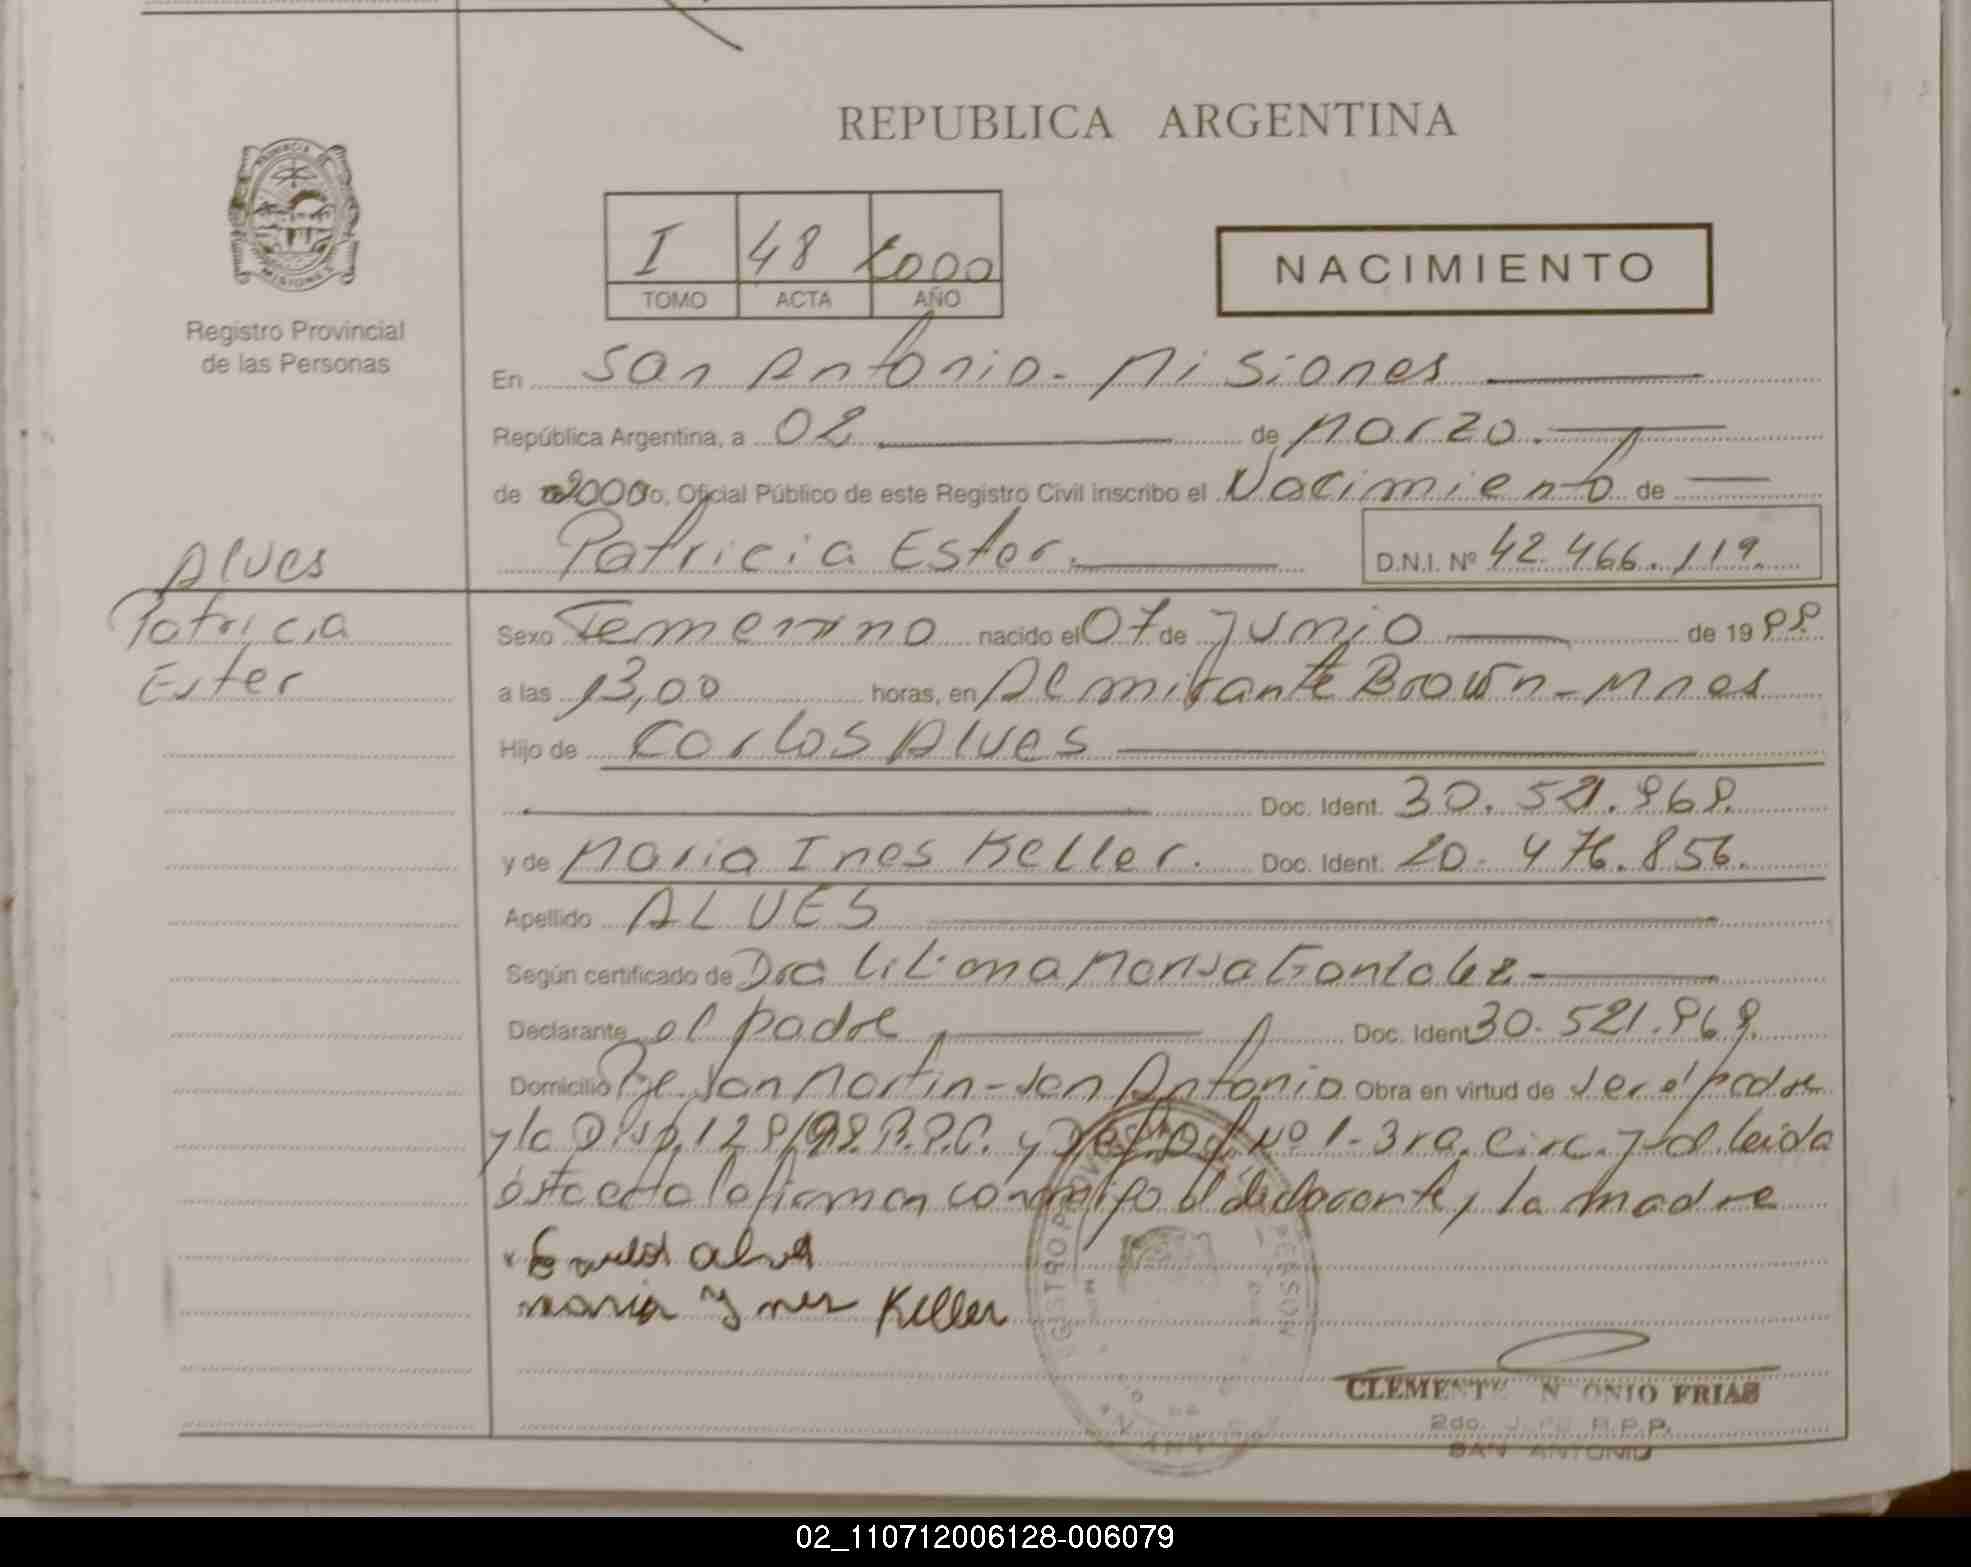 REPUBLICA ARGENTINA
PROVINCIA DE
MISIONES
Registro Provincial
de las Personas
I 48 2000
TOMO ACTA AÑO
NACIMIENTO
En San Antonio - Misiones
República Argentina, a 02 de Marzo.
de 2000 o, Oficial Público de este Registro Civil inscribo el Nacimiento de
Patricia Ester. D.N.I. Nº 42.466.119.
Alves
Patricia
Ester
Sexo Femenino nacido el 07 de Junio de 19 99
a las 13,00 horas, en Almirante Brown - Mnes
Hijo de Carlos Alves
Doc. Ident. 30.521.969.
y de Maria Ines Keller. Doc. Ident. 20.476.856.
Apellido ALVES
Según certificado de Dra Liliana Gonzalez -
Declarante el padre Doc. Ident 30.521.969.
Domicilio Pje San Martin - San Antonio Obra en virtud de Ser el padre
y la Disp. 129/99. R.P.C. y Def. Of. Nº 1 - 3ra. Circ. Jud. leida
ésta acta la firman conmigo el declarante y la madre
alves
maria ynes Keller
CLEMENTE ONIO FRIAS
2do. R.P.P.
SAN ANTONIO
02_110712006128-006079